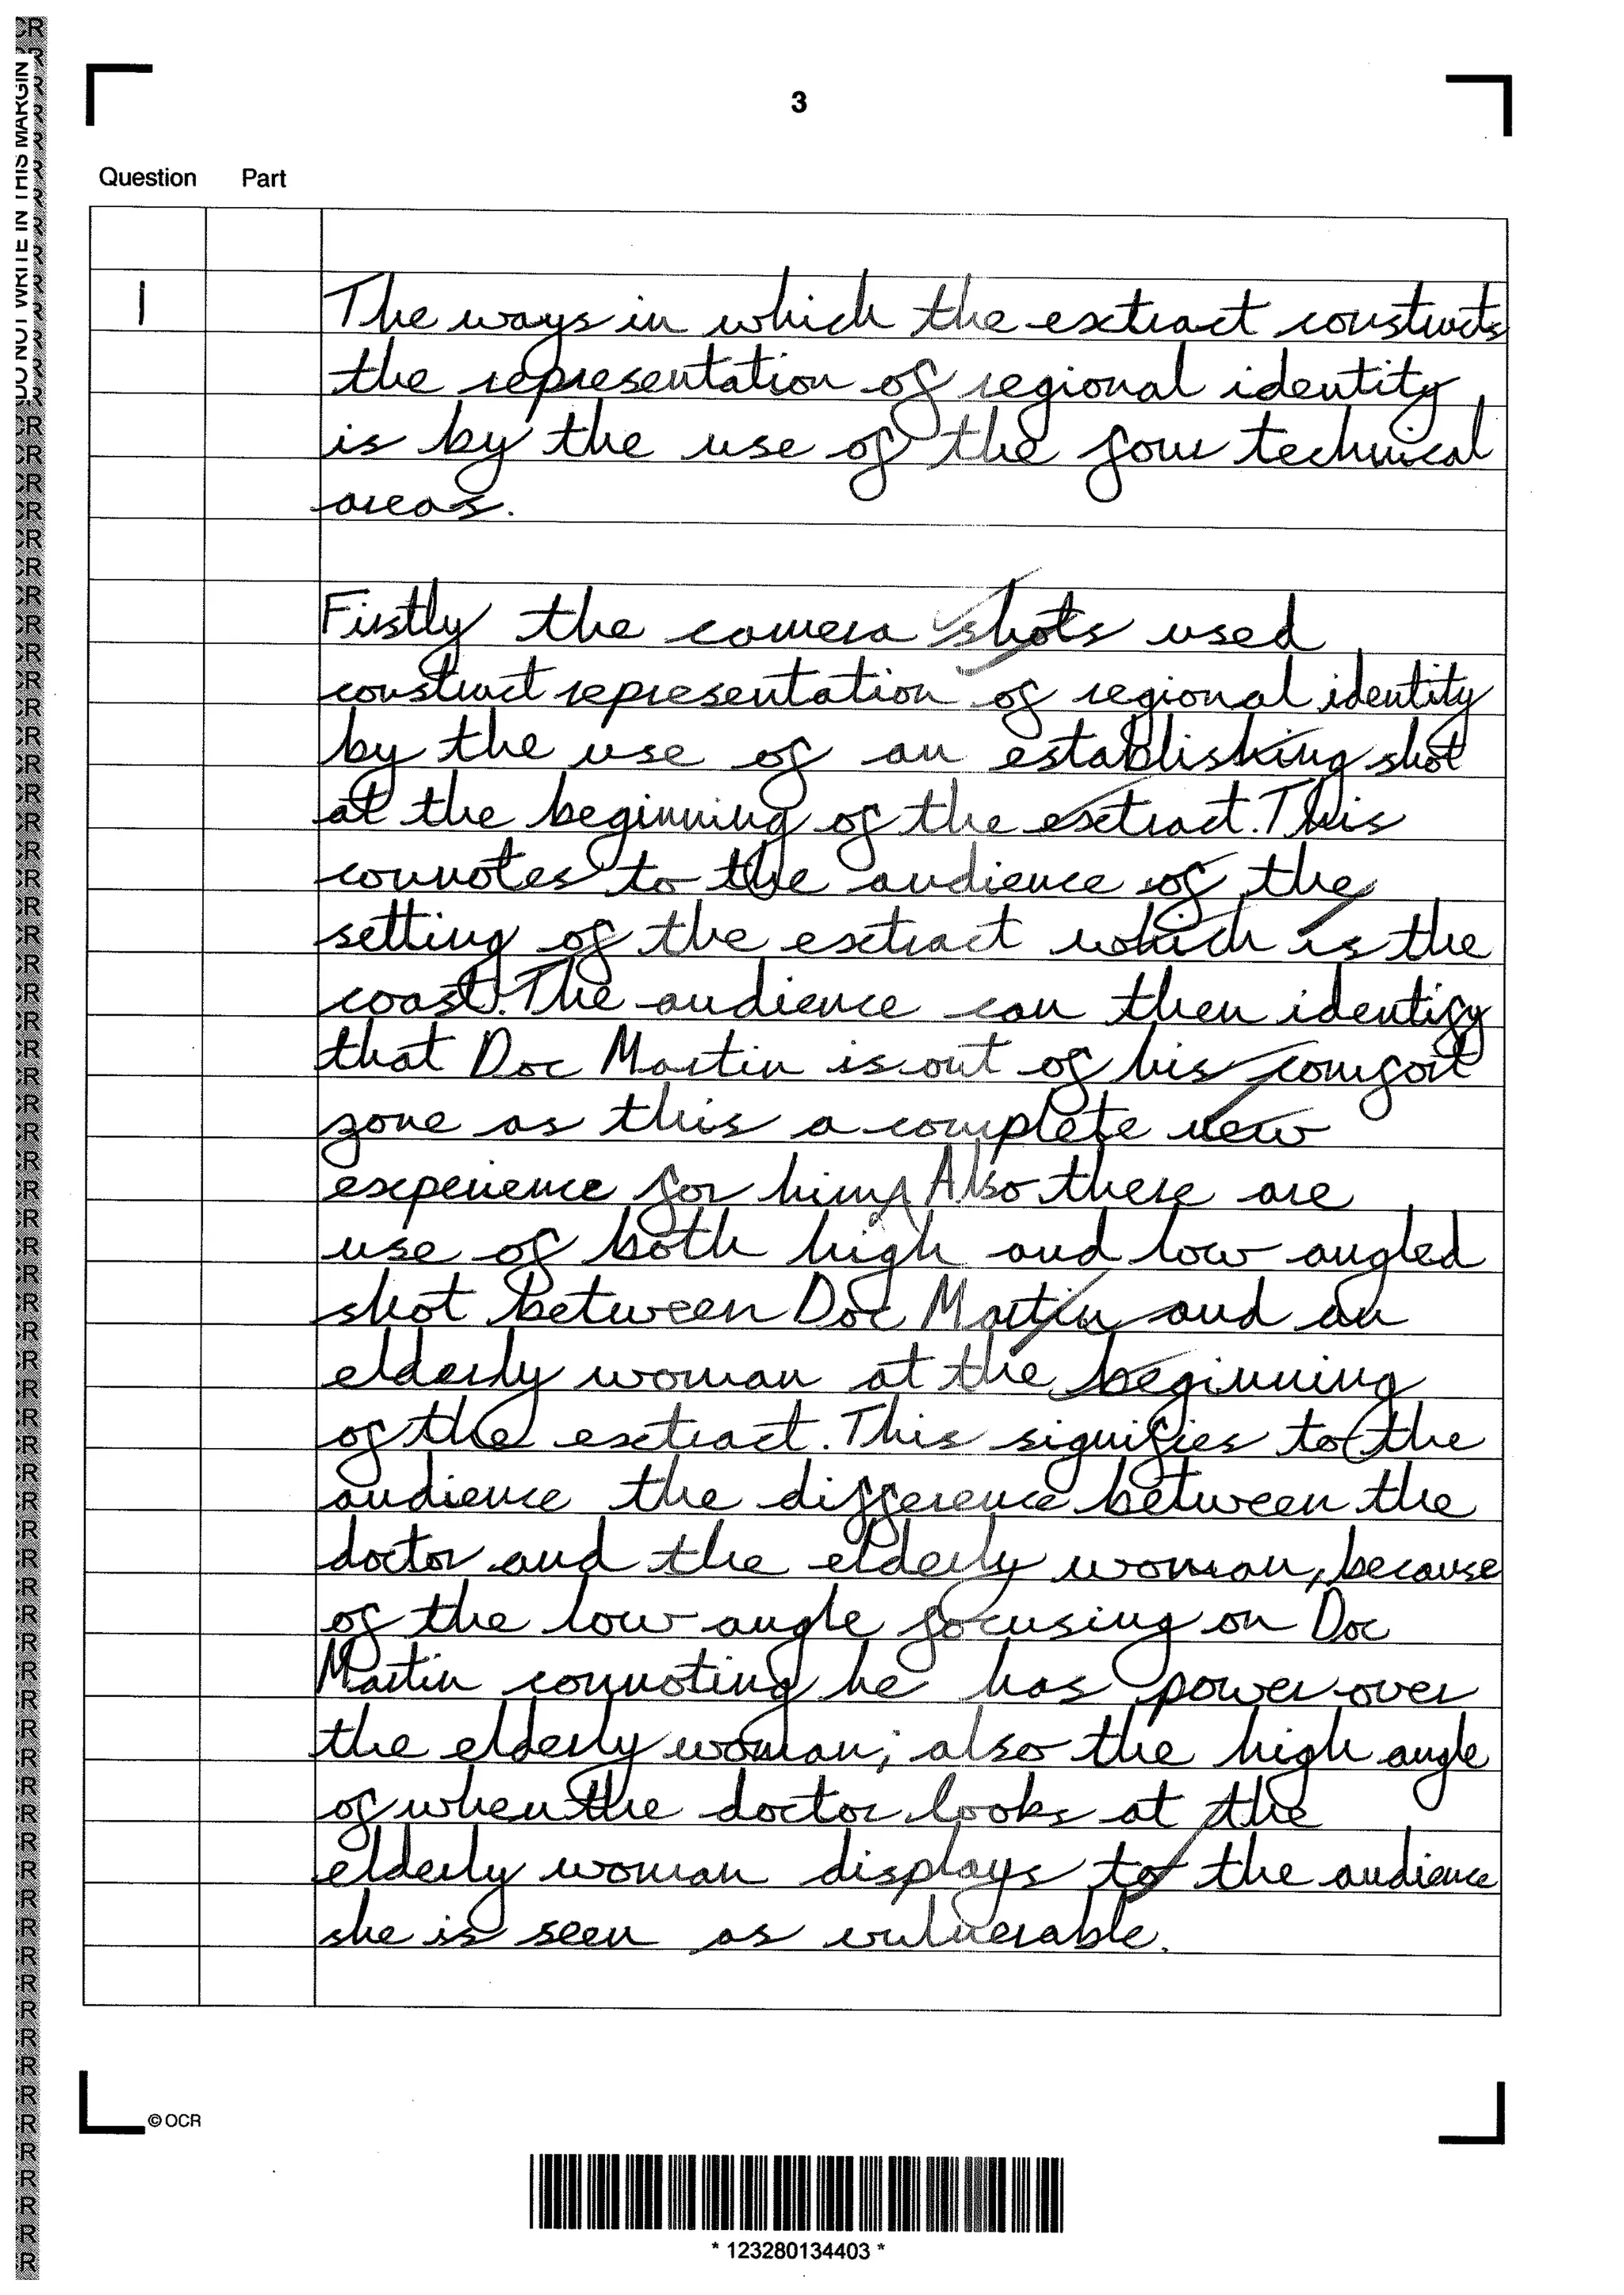 3
DO NOT WRITE IN THIS MARGIN
Question Part
1
The ways in which the extract constructs
the representation of regional identity
is by the use of the four technical
areas.
Firstly the camera shots used
construct representation of regional identity
by the use of an establishing shot
at the beginning of the extract. This
connotes to the audience of the
setting of the extract which is the
coast. The audience can then identify
that Doc Martin is out of his comfort
zone as this a complete new
experience for him. Also there are
use of both high and low angled
shot between Doc Martin and an
elderly woman at the beginning
of the extract. This signifies to the
audience the difference between the
doctor and the elderly woman, because
of the low angle focusing on Doc
Martin connoting he has power over
the elderly woman; also the high angle
of when the doctor looks at the
elderly woman displays to the audience
she is seen as vulnerable.
© OCR
* 123280134403 *